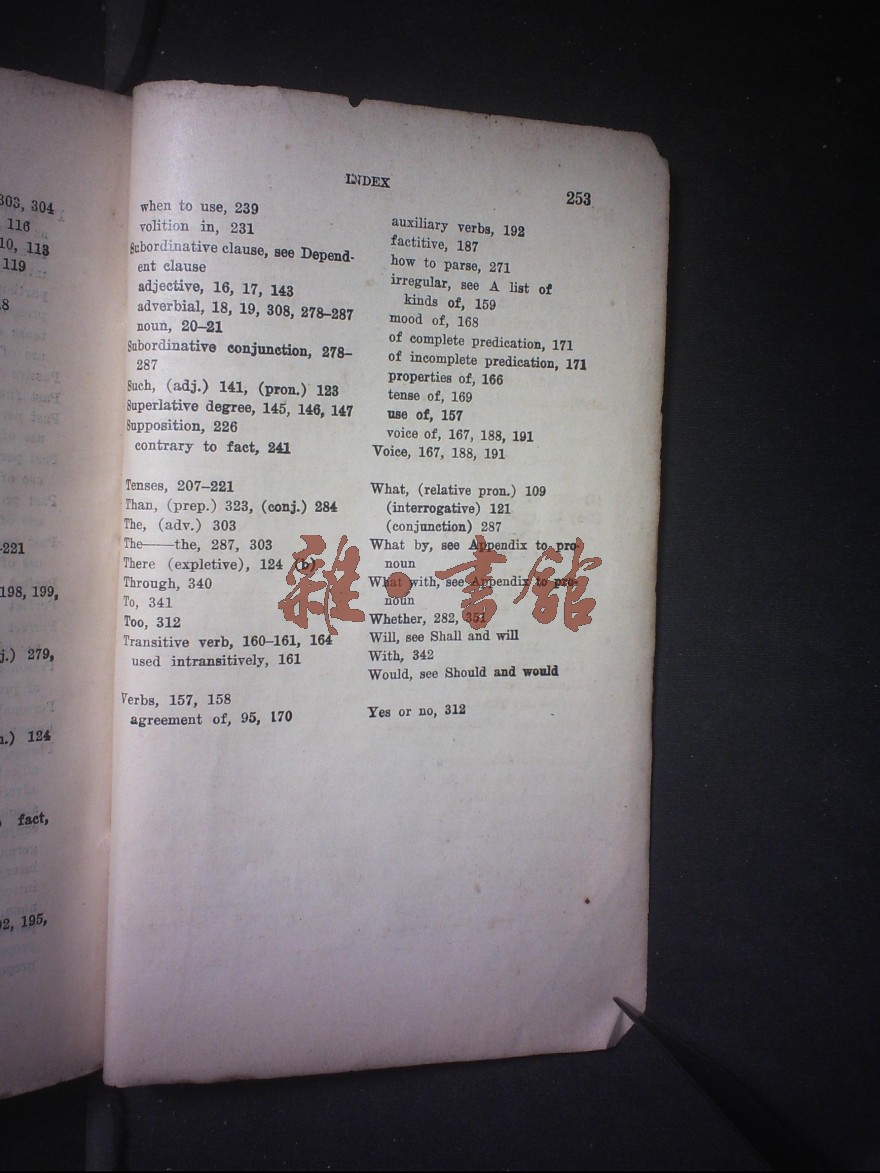 303, 304
116
10, 113
119
8
-221
198, 199,
j.) 279,
n.) 124
, fact,
92, 195,
INDEX
253
when to use, 239
volition in, 231
Subordinative clause, see Depend-
ent clause
adjective, 16, 17, 143
adverbial, 18, 19, 308, 278–287
noun, 20–21
Subordinative conjunction, 278–
287
Such, (adj.) 141, (pron.) 123
Superlative degree, 145, 146, 147
Supposition, 226
contrary to fact, 241
Tenses, 207–221
Than, (prep.) 323, (conj.) 284
The, (adv.) 303
The——the, 287, 303
There (expletive), 124 (b)
Through, 340
To, 341
Too, 312
Transitive verb, 160–161, 164
used intransitively, 161
Verbs, 157, 158
agreement of, 95, 170
auxiliary verbs, 192
factitive, 187
how to parse, 271
irregular, see A list of
kinds of, 159
mood of, 168
of complete predication, 171
of incomplete predication, 171
properties of, 166
tense of, 169
use of, 157
voice of, 167, 188, 191
Voice, 167, 188, 191
What, (relative pron.) 109
(interrogative) 121
(conjunction) 287
What by, see Appendix to pro-
noun
What with, see Appendix to pro-
noun
Whether, 282, 351
Will, see Shall and will
With, 342
Would, see Should and would
Yes or no, 312
雜·書館